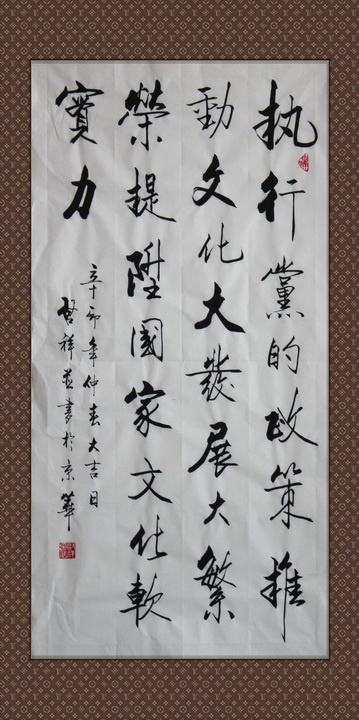 执行黨的政策推
動文化大發展大繁
榮提陞國家文化軟
實力
辛卯年仲春大吉日
啓祥並書於京華